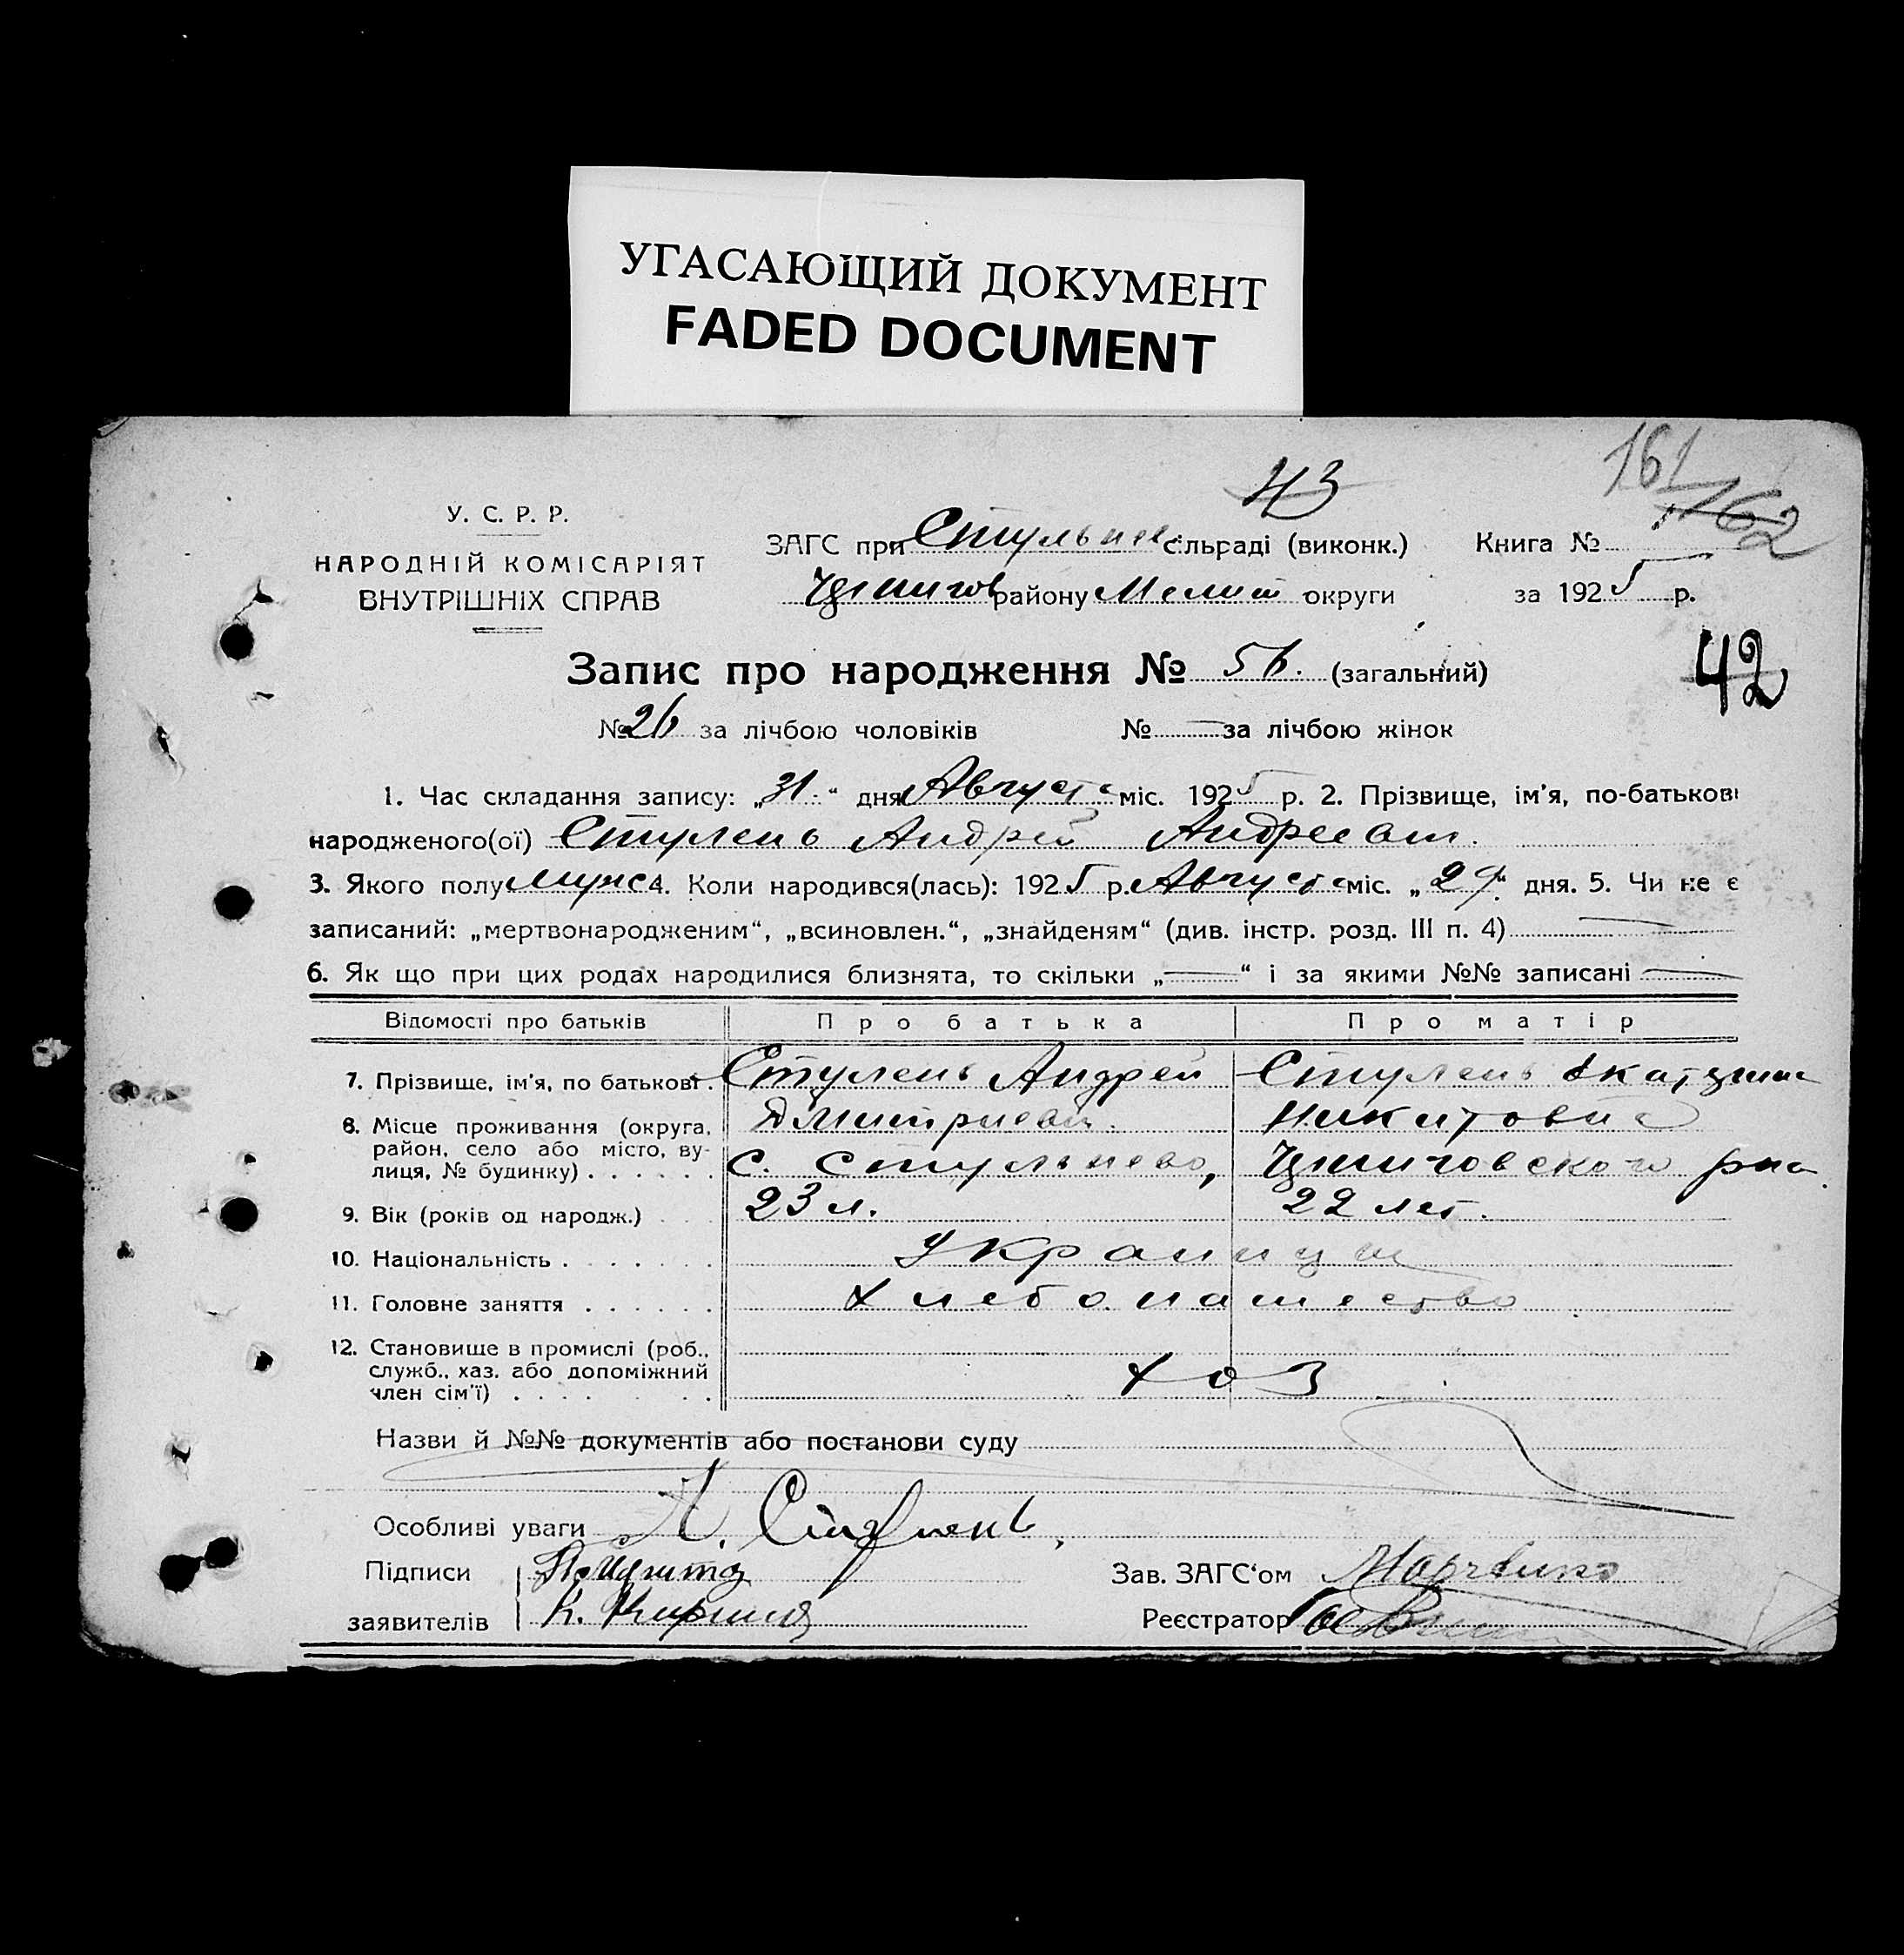 УГАСАЮЩИЙ ДОКУМЕНТ
FADED DOCUMENT
161
162
43
У. С. Р. Р.
НАРОДНІЙ КОМІСАРІЯТ
ВНУТРІШНІХ СПРАВ
ЗАГС при Стульнев сільраді (виконк.) Книга №
району Мелит округи за 1925 р.
42
Запис про народження № 56. (загальний)
№ 26 за лічбою чоловіків № — за лічбою жінок
1. Час складання запису: „31“ дня Августа міс. 1925 р. 2. Прізвище, ім'я, по-батькові
народженого(ої) Стулень Андрей Андреевич.
3. Якого полу мужс 4. Коли народився(лась): 1925 р. Августа міс. „29“ дня. 5. Чи не є
записаний: „мертвонародженим“, „всиновлен.“, „знайденям“ (див. інстр. розд. III п. 4) —
6. Як що при цих родах народилися близнята, то скільки „—“ і за якими №№ записані —
Відомості про батьків Про батька Про матір
7. Прізвище, ім'я, по батькові . Стулень Андрей Стулень Екатерина
Дмитриевич. Никитовна
8. Місце проживання (округа,
район, село або місто, ву-
лиця, № будинку) . . . . . . с. Стульнево, Черниговского рна
9. Вік (років од народж.) . . . 23 л. 22 лет.
10. Національність . . . . . . . Украинцы
11. Головне заняття . . . . . . Хлебопашество
12. Становище в промислі (роб.,
служб., хаз. або допоміжний
член сім'ї) . . . . . . . хоз
Назви й №№ документів або постанови суду
Особливі уваги А. Стулень
Підписи
заявителів
Зав. ЗАГС‘ом
Реєстратор